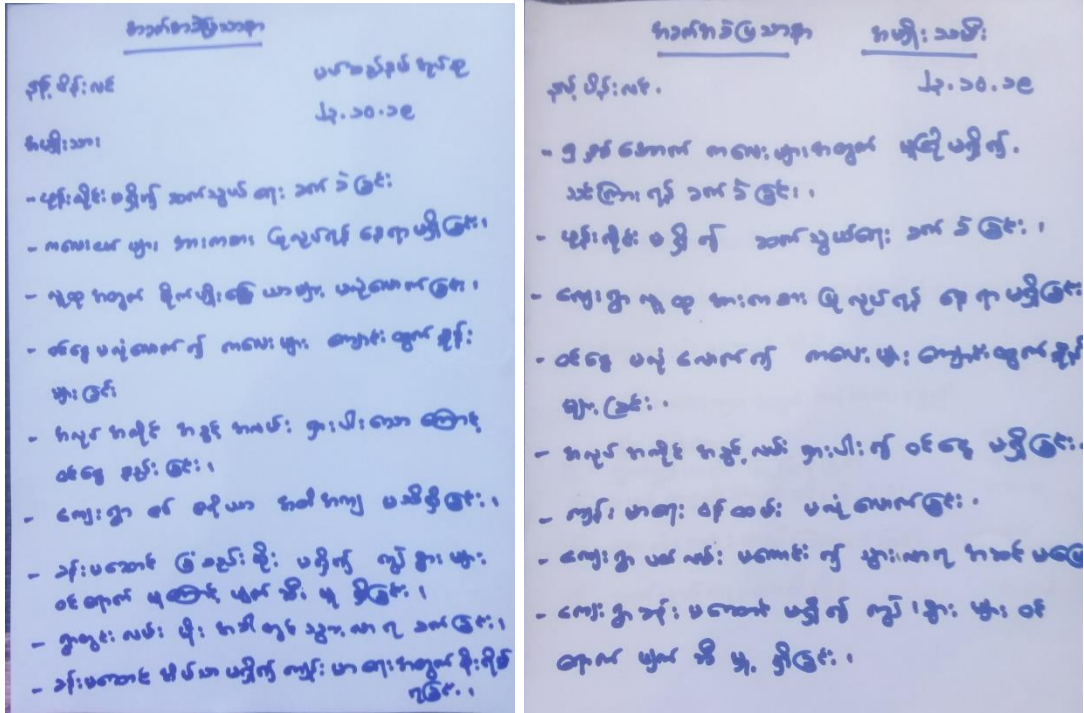 အခက်အခဲပြဿနာ
နှစ့်ပိန်းလင်
မယ်ဆည်နယ် အုပ်စု
၂၃.၁၀.၁၉
အမျိုးသား
- ဖုန်းလိုင်း မရှိ၍ ဆက်သွယ်ရေး ခက်ခဲခြင်း
- ကလေးငယ်များ အားကစား ပြုလုပ်ရန် နေရာမရှိခြင်း၊
- လူထုအတွက် စိုက်ပျိုးမြေ ယာများ မလုံလောက်ခြင်း၊
- ဝင်ငွေ မလုံလောက်၍ ကလေးများ ကျောင်းထွက်နှုန်း
များခြင်း
- အလုပ်အကိုင် အခွင့်အလမ်း ရှားပါးသော ကြောင့်
ဝင်ငွေ နည်းခြင်း၊
- ကျေးရွာ ဧရိယာ အတိအကျ မသိရှိခြင်း၊
- ခန်းမဆောင် ခြံစည်းရိုး မရှိ၍ ကျွဲ နွားများ
ဝင်ရောက် မှုကြောင့် ပျက်စီးမှု ရှိခြင်း၊
- ရွာတွင်းလမ်း မိုးအခါတွင် သွားလာရ ခက်ခြင်း၊
- ခန်းမဆောင် အိမ်သာ မရှိ၍ ကျန်းမာရေးအတွက် စိုးရိမ်
ရခြင်း၊
အခက်အခဲပြဿနာ
အမျိုးသမီး
နှစ့်ပိန်းလင်.
၂၃.၁၀.၁၉
- ၅နှစ်အောက် ကလေးများအတွက် မူကြို မရှိ၍.
သင်ကြားရန် ခက်ခဲခြင်း၊
- ဖုန်းလိုင်း မရှိ၍ ဆက်သွယ်ရေး ခက်ခဲခြင်း၊
- ကျေးရွာ လူထု အားကစား ပြုလုပ်ရန် နေရာမရှိခြင်း
- ဝင်ငွေ မလုံလောက်၍ ကလေးများ ကျောင်းထွက်နှုန်း
များခြင်း၊
- အလုပ်အကိုင် အခွင့်လမ်း ရှားပါး၍ ဝင်ငွေ မရှိခြင်း
- ကျန်းမာရေး ဝန်ထမ်း မလုံလောက်ခြင်း၊
- ကျေးရွာ ပတ်လမ်း မကောင်း၍ သွားလာရ အဆင်မပြေ
- ကျေးရွာ ခန်းမဆောင် မရှိ၍ ကျွဲ၊ နွားများ ဝင်
ရောက် ပျက်စီးမှု ရှိခြင်း၊